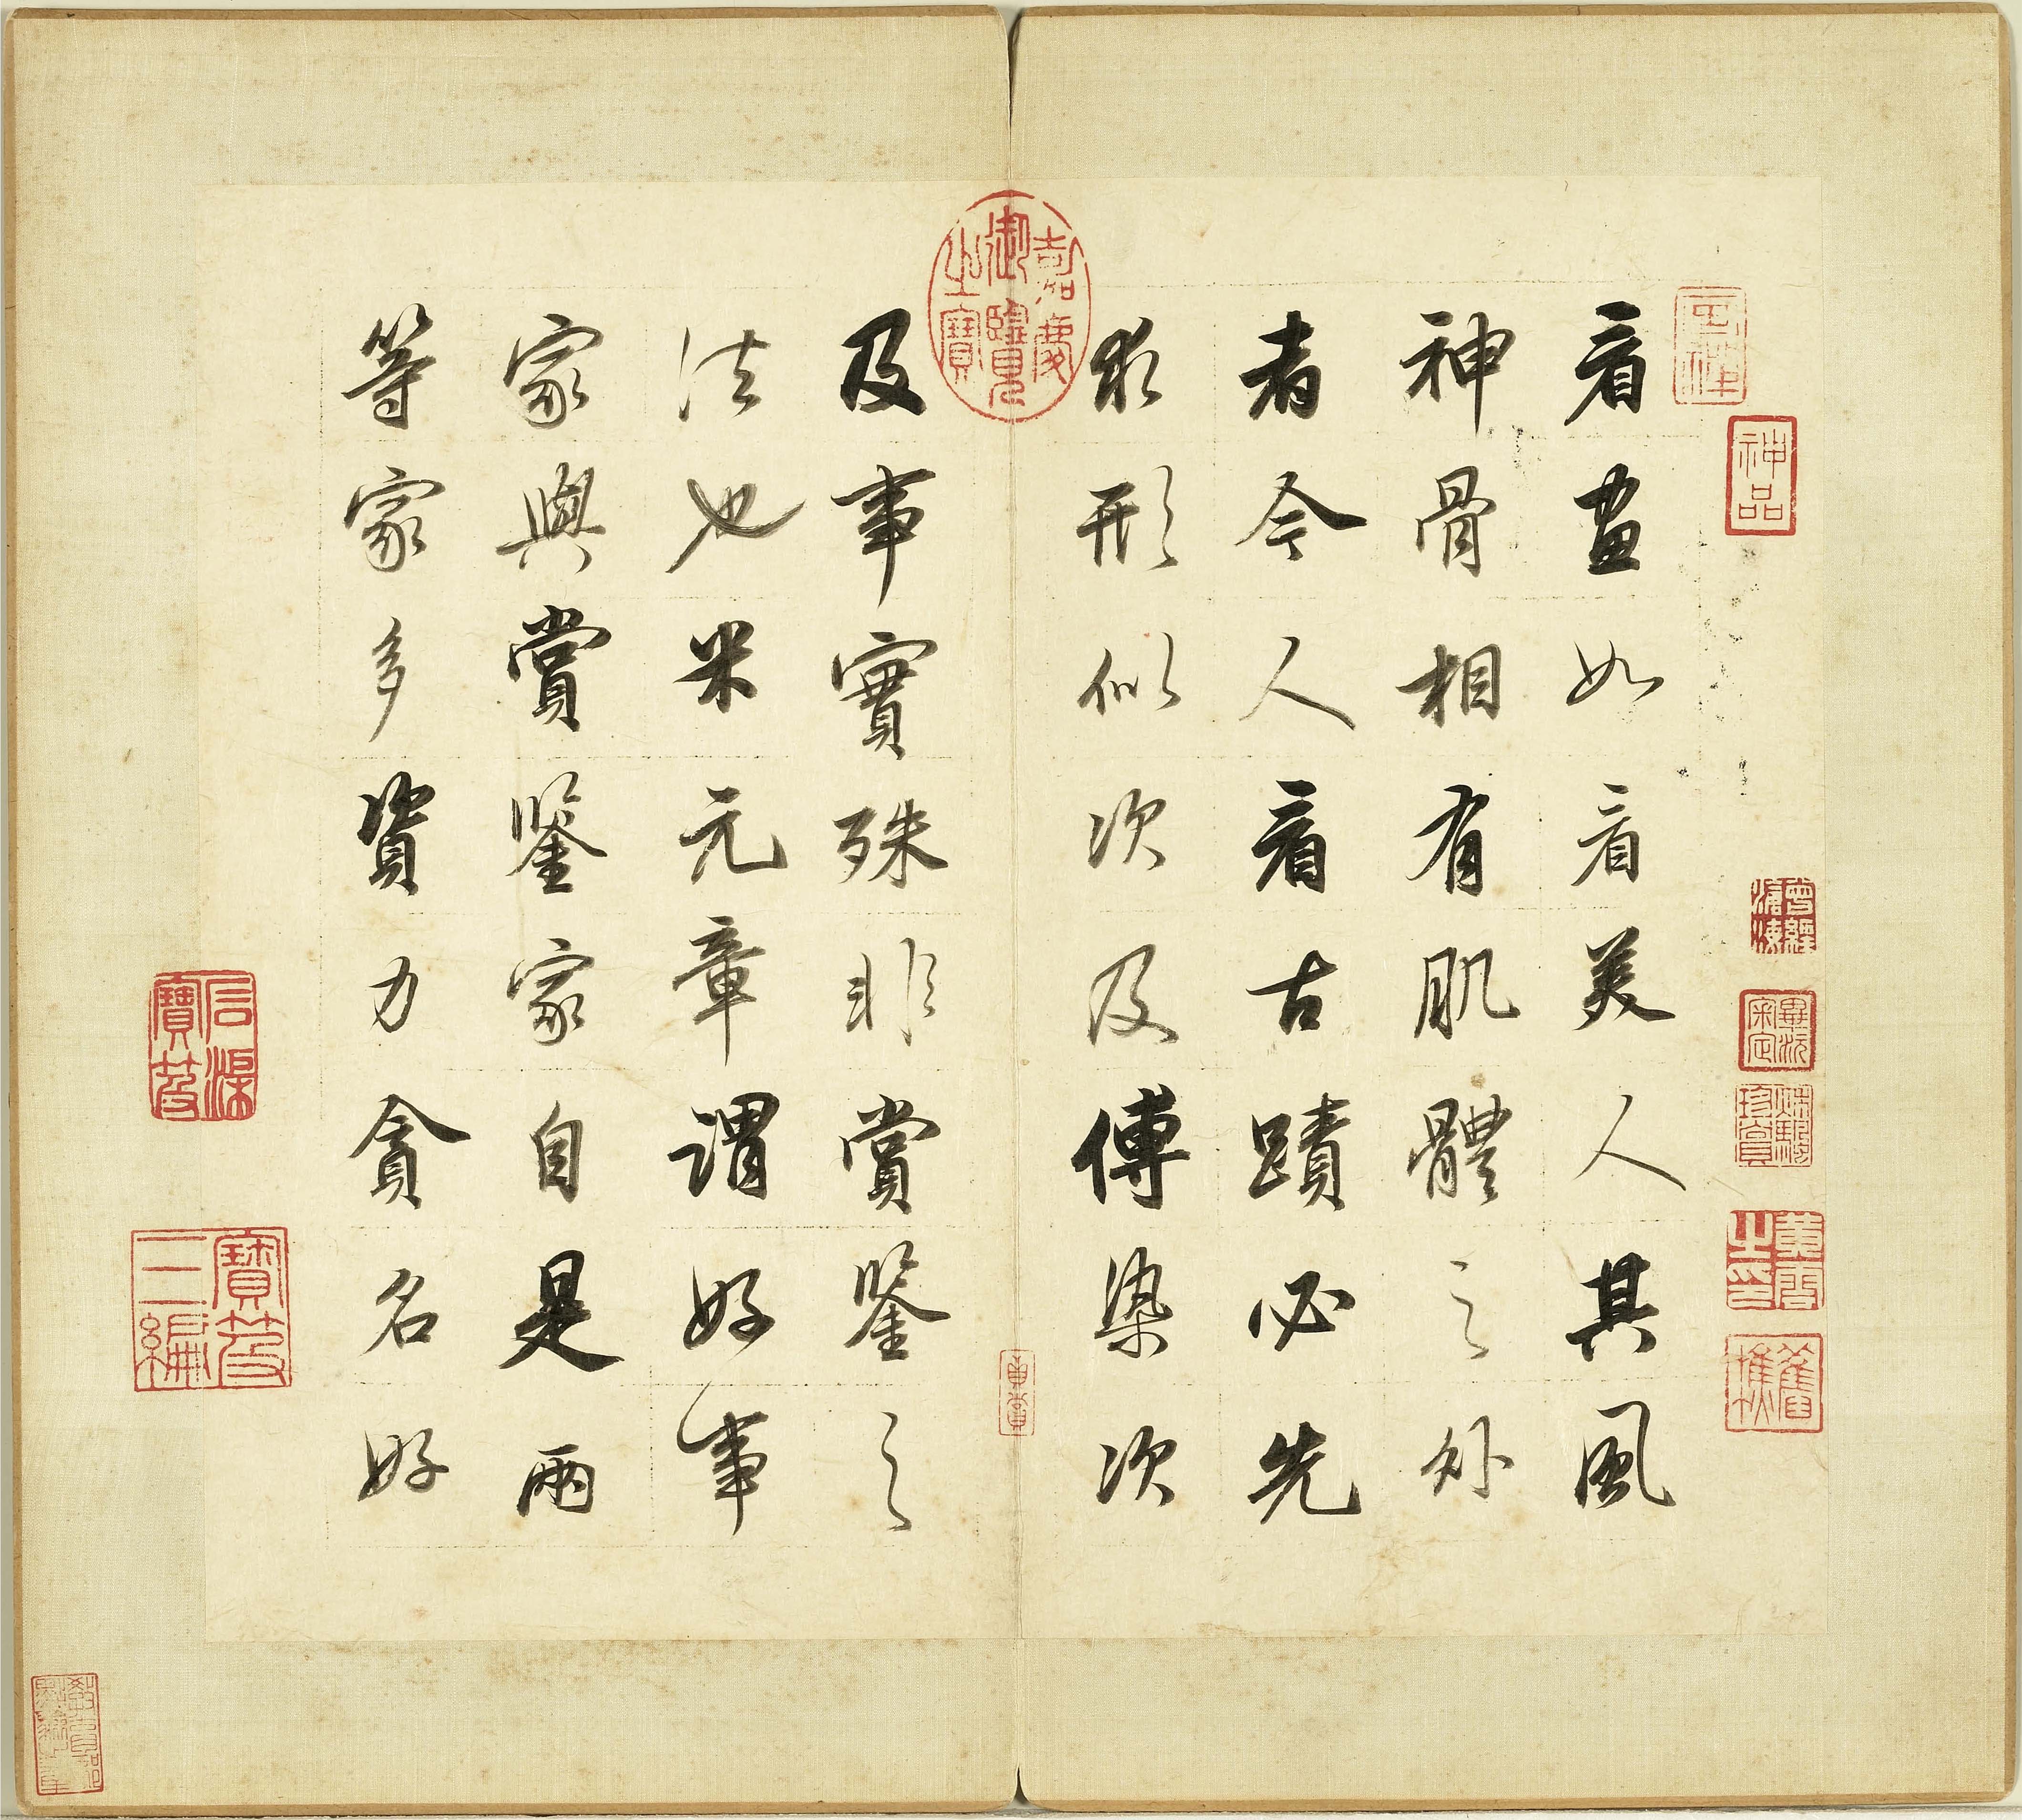 看畫如看美人其風
神骨相有肌體之外
者今人看古蹟必先
求形似次及傅染次
及事實殊非賞鑒之
法也米元章謂好事
家與賞鑒家自是兩
等家多資力貪名好
嘉慶御覽之寶
神品
寶笈三編